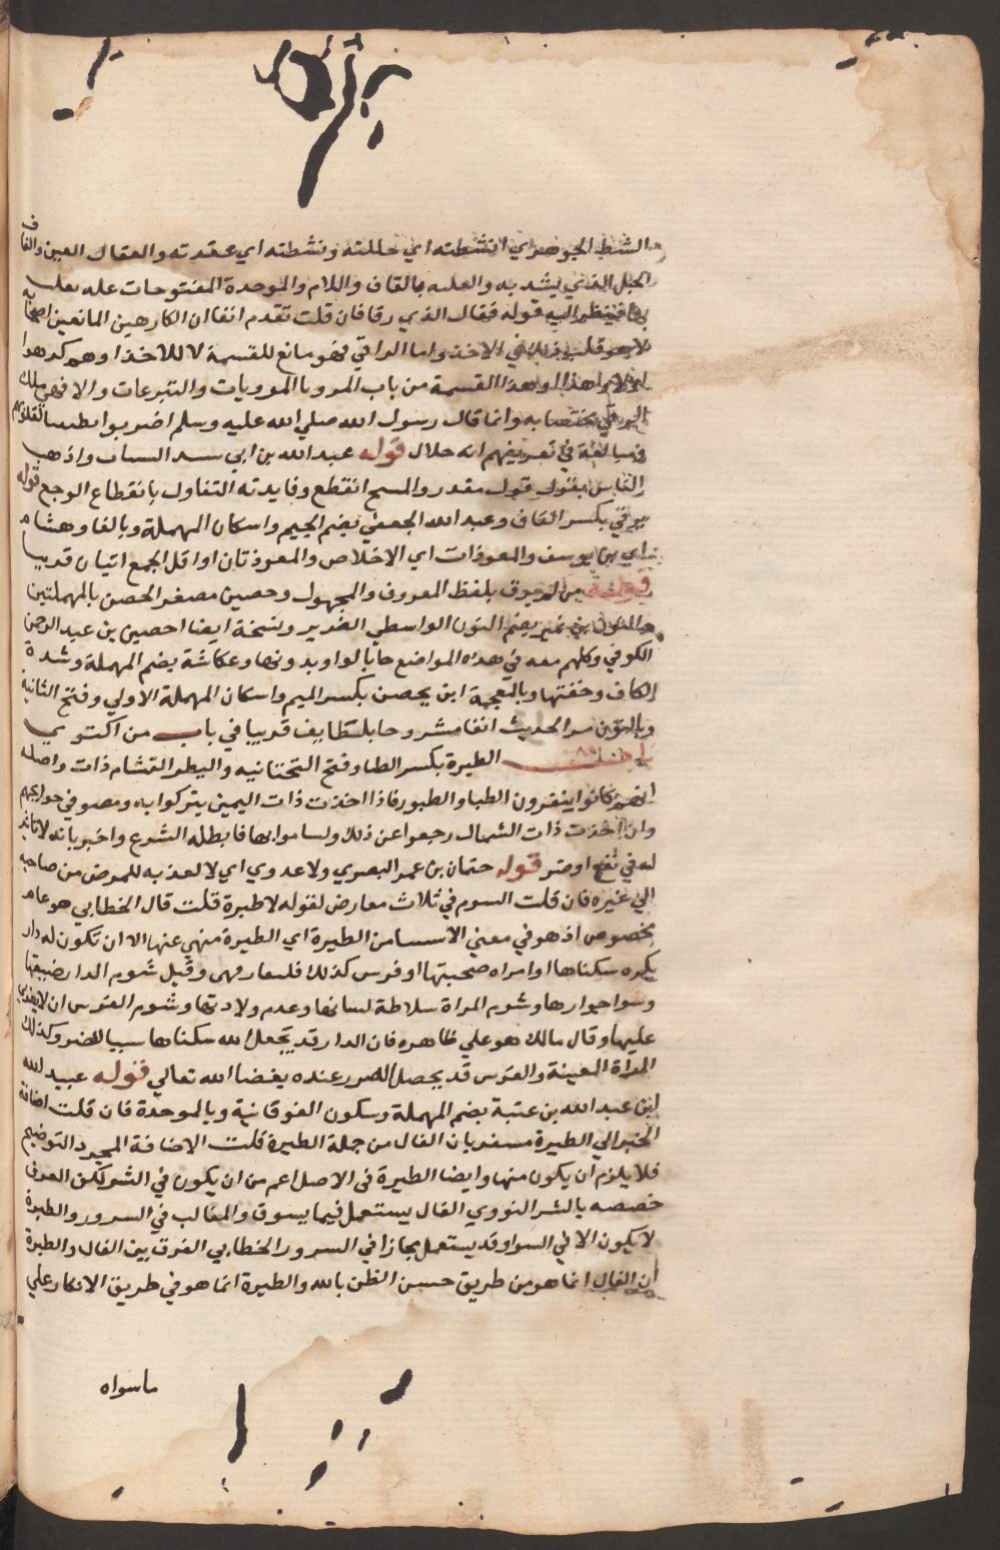 الشط الجوهري انشطته اي حللته ونشطته اي عقدته والعقال العين والقاف
الحبل الذي يشد به والعلبه بالقاف واللام والموحدة المفتوحات عله يعلب
فينظر اليه قوله فقال الذي رقا فان قلت تقدم انفا ان الكارهين المانعين اصحابه
لا هو قلت ذلك في الاخذ واما الراقي فهو مانع للقسمة لا للاخذ او هم كرهوا
وهذا القسمة من باب المروءات والتبرعات والا فهي ملك
الراقي مختصا به وانما قال رسول الله صلي الله عليه وسلم اضربوا لقلوبهم
ومبالغة في تعريفهم انه حلال قوله عبد الله بن ابي واذهب
الناس قول مقدر والمسح انقطع وفايدته التفاول بانقطاع الوجع قوله
يرقي بكسر القاف وعبد الله الجعفي بضم الجيم واسكان المهملة وبالفا وهشام
اي بن يوسف والمعوذات اي الاخلاص والمعوذتان او اقل الجمع اتيان قريبا
قوله من لم يرق بلفظ المعروف والمجهول وحصين مصغر الحصن بالمهملتين
والنون بن نمير بضم النون الواسطي الضرير ونسخة ايضا حصين بن عبد الرحمن
الكوفي وكلهم معه في هذه المواضع جا بالواو بدونها وعكاشة بضم المهملة وشدة
الكاف وخفتها وبالمعجمة ابن محصن بكسر الميم واسكان المهملة الاولي وفتح الثانية
وبالنون مر الحديث انفا مشروحا بلطايف قريبا في باب من اكتوي
باب الطيرة بكسر الطا وفتح التحتانيه والتطير التشام ذات واصله
انهم كانوا ينفرون الظبا والطيور فاذا اخذت ذات اليمين يتركوا به ومضوا في حوايجهم
وان اخذت ذات الشمال رجعوا عن ذلك وتشاموا بها فابطله الشرع واخبر بانه لا تاثير
له في نفع او ضر قوله عثمان بن عمر البصري ولا عدوي اي لا تعديه للمرض من صاحبه
الي غيره فان قلت الشوم في ثلاث معارض لقوله لا طيرة قلت قال الخطابي هو عام
مخصوص اذ هو في معني الاستثنا من الطيرة اي الطيرة منهي عنها الا ان تكون له دار
يكره سكناها او امراه صحبتها او فرس كذلك فليفارقهن وقيل شوم الدار ضيقها
وسوا جوارها وشوم المراة سلاطة لسانها وعدم ولادتها وشوم الفرس ان لا يغزي
عليها وقال مالك هو علي ظاهره فان الدار قد يجعل الله سكناها سببا للضرر وكذلك
المراة المعينة والفرس قد يحصل الضرر عنده بقضا الله تعالي قوله عبيد الله
ابن عبد الله بن عتبة بضم المهملة وسكون الفوقانية وبالموحدة فان قلت اضافة
الخير الي الطيرة مشعر بان الفال من جملة الطيرة قلت الاضافة لمجرد التوضيح
فلا يلزم ان يكون منها وايضا الطيرة في الاصل اعم من ان يكون في الشر لكن العرف
خصصه بالشر النووي الفال يستعمل فيما يسو والغالب في السرور والطيرة
لا يكون الا في السوا وقد يستعمل مجازا في السرور الخطابي الفرق بين الفال والطيرة
ان الفال انما هو من طريق حسن الظن بالله والطيرة انما هو في طريق الاتكار علي
ما سواه